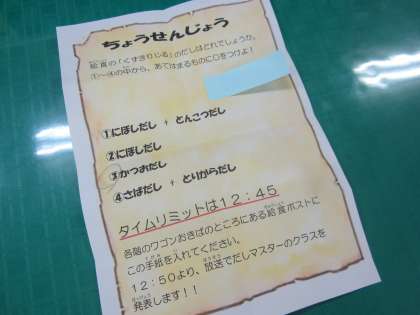 ちょうせんじょう
給食の「くずきりじる」のだしはどれでしょうか。
①~④の中から、あてはまるものに○をつけよ!
①にぼしだし + とんこつだし
②にぼしだし
③かつおだし
④さばだし + とりがらだし
タイムリミットは12:45
各階のワゴンおきばのところにある給食ポストに
この手紙を入れてください。
12:50より、放送でだしマスターのクラスを
発表します!!